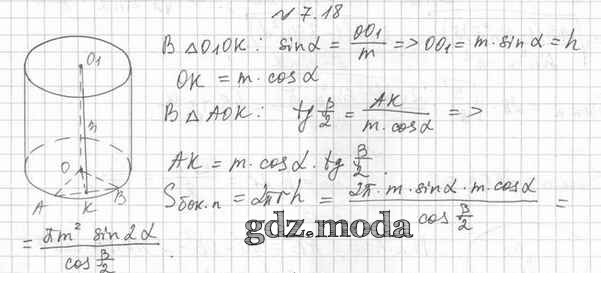 № 7.18
В △O1OK: sinα = OO1/m => OO1 = m·sinα = h
OK = m·cosα
В △AOK: tg β/2 = AK/(m·cosα) =>
AK = m·cosα·tg β/2.
Sбок.п = 2πrh = (2π·m·sinα·m·cosα)/(cos β/2) =
= (πm² sin2α)/(cos β/2).
O1
O
A
K
B
gdz.moda